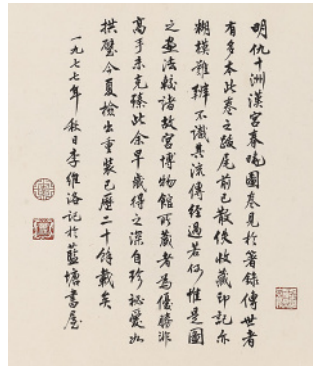 明仇十洲漢宮春曉圖卷見於著錄傳世者
有多本此卷之跋尾前已散佚收藏印記亦
糊模難辨不識其流傳經過若何惟是圖
之畫法較諸故宮博物館所藏者為優勝非
高手未克臻此余早歲得之深自珍祕愛如
拱璧今夏檢出重裝已歷二十餘載矣
一九七七年秋日李維洛記於藍塘書屋